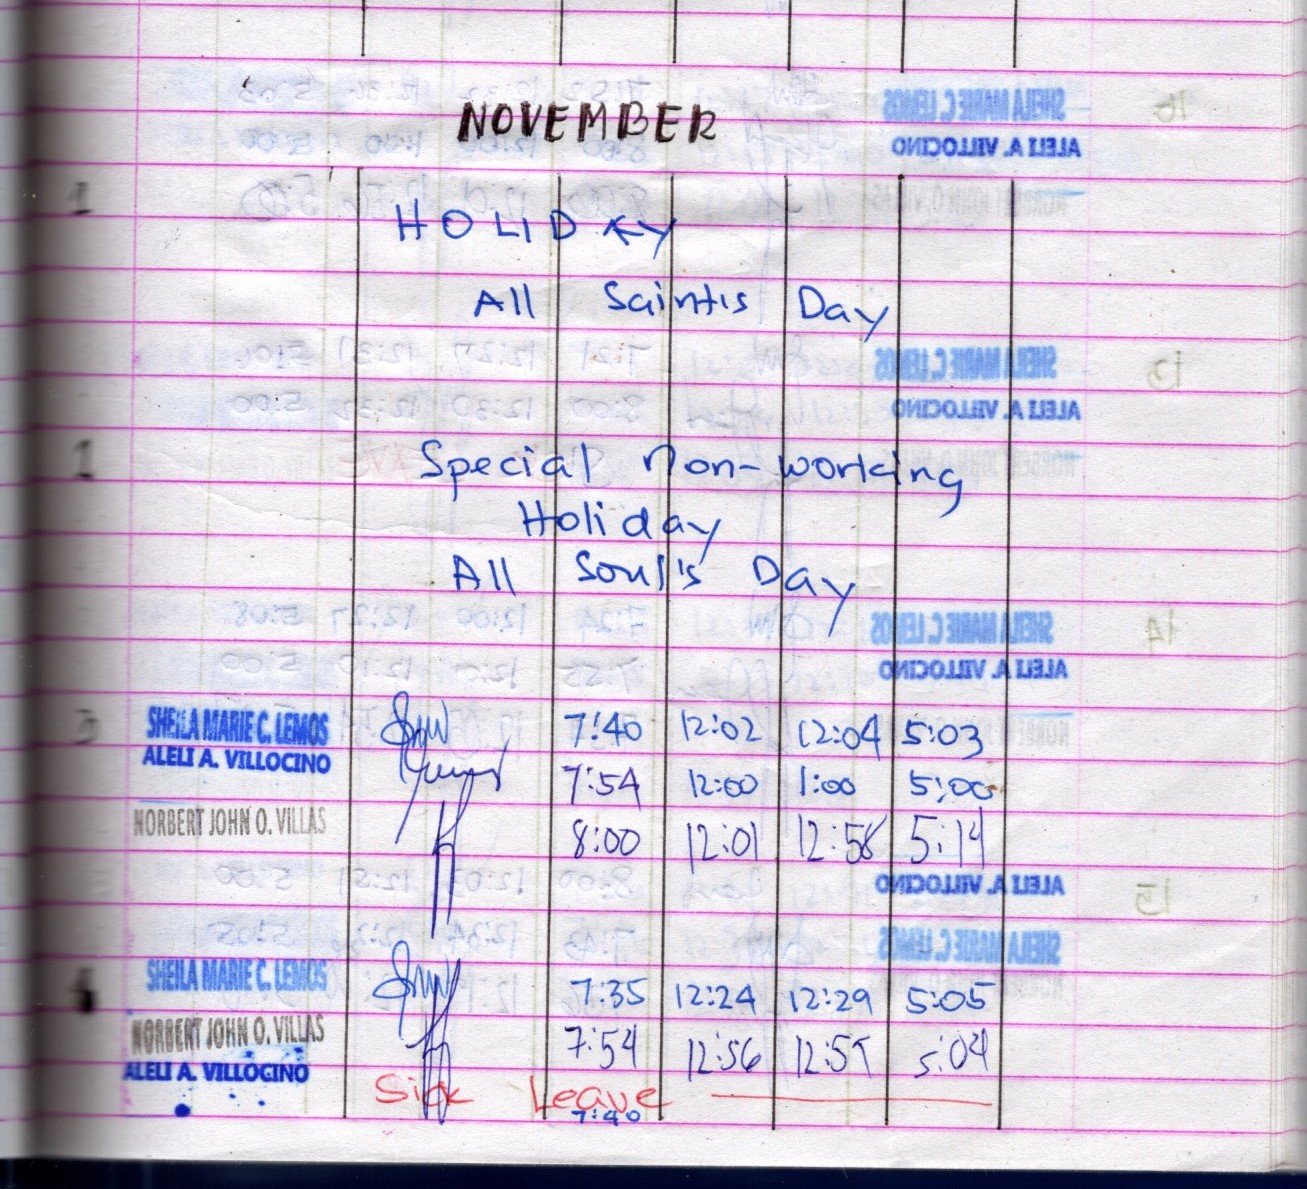 NOVEMBER
1
HOLIDAY
All Saint's Day
1
Special Non-working
Holiday
All Soul's Day
5 SHEILA MARIE C. LEMOS 7:40 12:02 12:04 5:03
ALELI A. VILLOCINO 7:54 12:00 1:00 5:00
NORBERT JOHN O. VILLAS 8:00 12:01 12:58 5:14
SHEILA MARIE C. LEMOS 7:35 12:24 12:29 5:05
NORBERT JOHN O. VILLAS 7:54 12:56 12:57 5:04
ALELI A. VILLOCINO Sick Leave
7:40